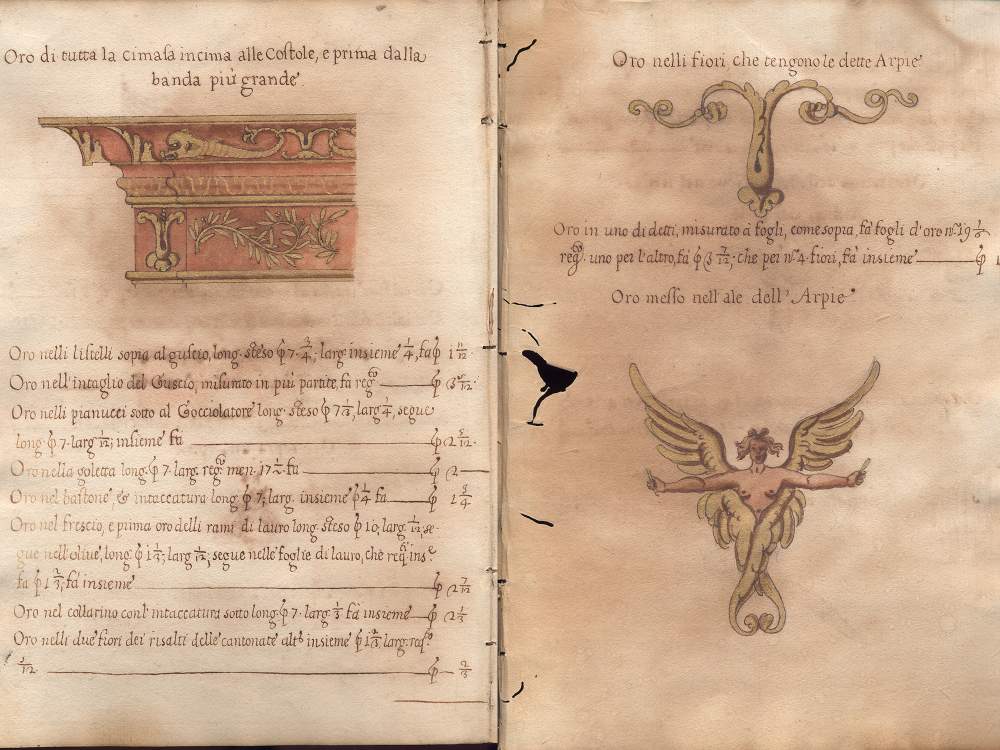 Oro di tutta la cimasa incima alle Costole, e prima dalla
banda più grande
Oro nelli listelli sopra al guscio, long. steso ꝕ 7 · 3/4; larg. insieme 1/4, fa ꝕ 1 11/12
Oro nell'intaglio del Guscio, misurato in più partite, fa reg.to ꝕ 3 5/12.
Oro nelli pianucci sotto al Gocciolatore long. steso ꝕ 7 1/3, larg. 1/4, segue
long. ꝕ 7 · larg. 1/12; insieme fa ꝕ 2 5/12.
Oro nella goletta long. ꝕ 7 · larg. reg.to men. fa ꝕ 2
Oro nel bastone, & intaccatura long. ꝕ 7, larg. insieme ꝕ 1/4 fa ꝕ 1 3/4
Oro nel frescio, e prima oro delli rami di lauro long. steso ꝕ 10, larg. 1/12, se-
gue nell'olive, long. ꝕ 1 1/3; larg. 1/12; segue nelle foglie di lauro, che req.to ins.e
fa ꝕ 1 2/3; fa insieme ꝕ 2 7/12
Oro nel collarino con l'intaccatura sotto long. ꝕ 7 · larg. 1/3 fa insieme ꝕ 2 1/3
Oro nelli due fiori dei risalti delle cantonate alt.o insieme ꝕ 1 2/3 larg.
5/12 ꝕ 2/3
Oro nelli fiori che tengono le dette Arpie
Oro in uno di detti, misurato à fogli, come sopra, fa fogli d'oro n.o 19 1/2
reg.to uno per l'altro, fa ꝕ 3 7/12; che per n.o 4 · fiori, fa insieme ꝕ 1
Oro messo nell'ale dell'Arpie